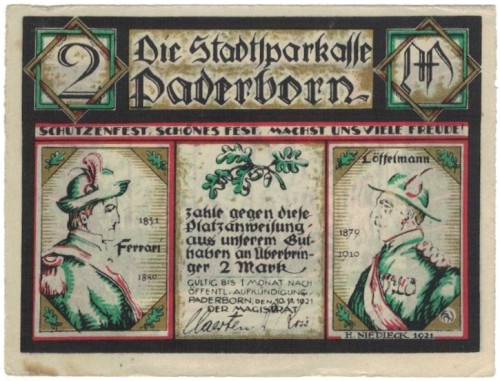 2
Die Stadtsparkasse
Paderborn
M
SCHÜTZENFEST, SCHÖNES FEST, MACHST UNS VIELE FREUDE!
1831
Ferrari
1880
zahle gegen diese
Platzanweisung
aus unserem Gut-
haben an Überbrin-
ger 2 Mark
GÜLTIG BIS 1 MONAT NACH
ÖFFENTL. AUFKÜNDIGUNG.
PADERBORN, DEN 10.11.1921
DER MAGISTRAT
Löffelmann
1879
1910
H. NIEDIECK 1921